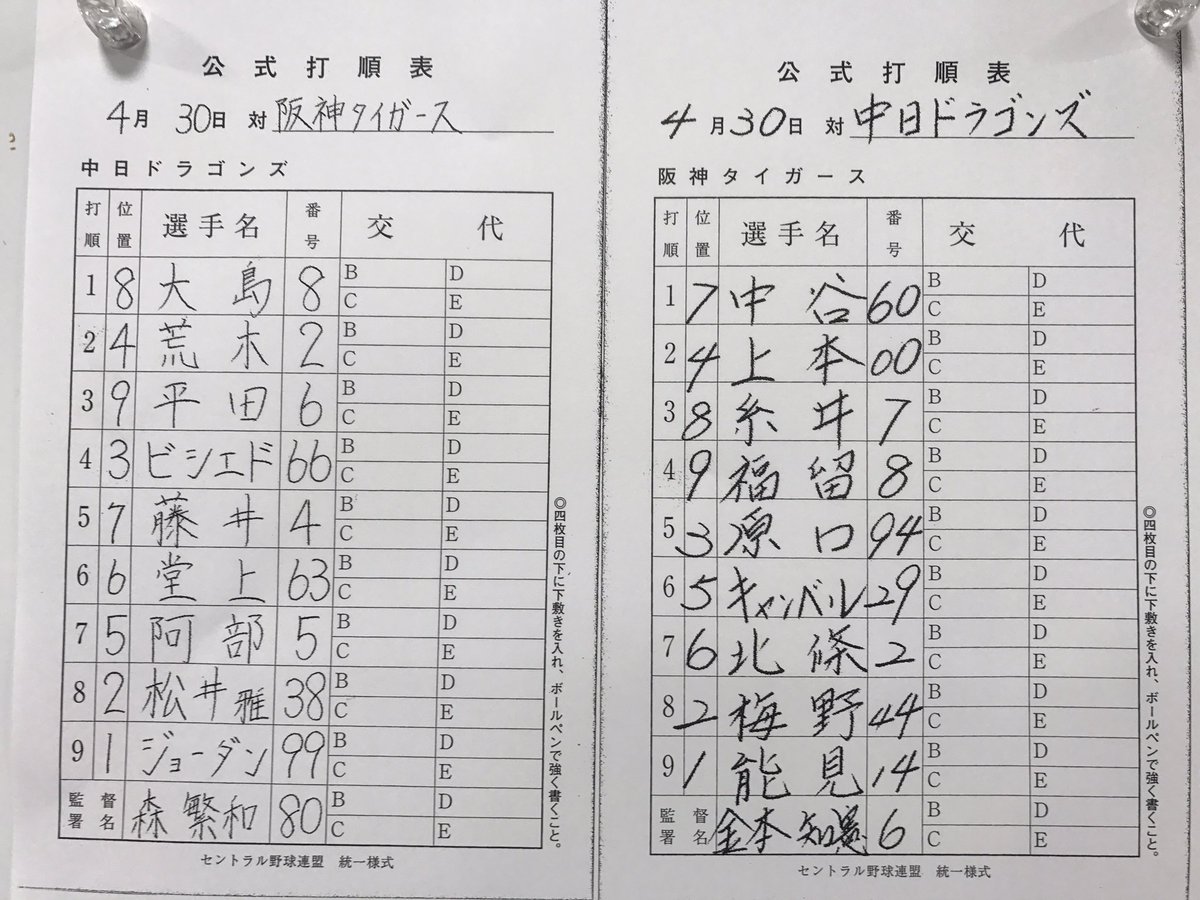 公式打順表
4月 30日 対 阪神タイガース
中日ドラゴンズ
打順 位置 選手名 番号 交代
1 8 大島 8 B D C E
2 4 荒木 2 B D C E
3 9 平田 6 B D C E
4 3 ビシエド 66 B D C E
5 7 藤井 4 B D C E
6 6 堂上 63 B D C E
7 5 阿部 5 B D C E
8 2 松井雅 38 B D C E
9 1 ジョーダン 99 B D C E
監督署名 森繁和 80 B D C E
セントラル野球連盟 統一様式
◎四枚目の下に下敷きを入れ、ボールペンで強く書くこと。
公式打順表
4月30日 対 中日ドラゴンズ
阪神タイガース
打順 位置 選手名 番号 交代
1 7 中谷 60 B D C E
2 4 上本 00 B D C E
3 8 糸井 7 B D C E
4 9 福留 8 B D C E
5 3 原口 94 B D C E
6 5 キャンベル 29 B D C E
7 6 北條 2 B D C E
8 2 梅野 44 B D C E
9 1 能見 14 B D C E
監督署名 金本知憲 6 B D C E
セントラル野球連盟 統一様式
◎四枚目の下に下敷きを入れ、ボールペンで強く書くこと。